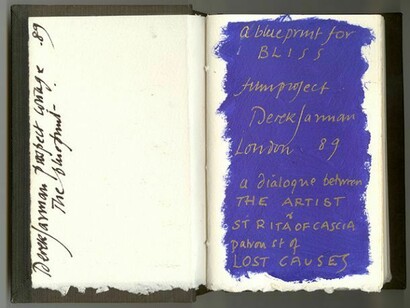 Derek Jarman Prospect Cottage . 89
The blueprint -
a blueprint for
BLISS
filmproject
Derek Jarman
London . 89
a dialogue between
THE ARTIST
&
ST RITA OF CASCIA
patron st of
LOST CAUSES